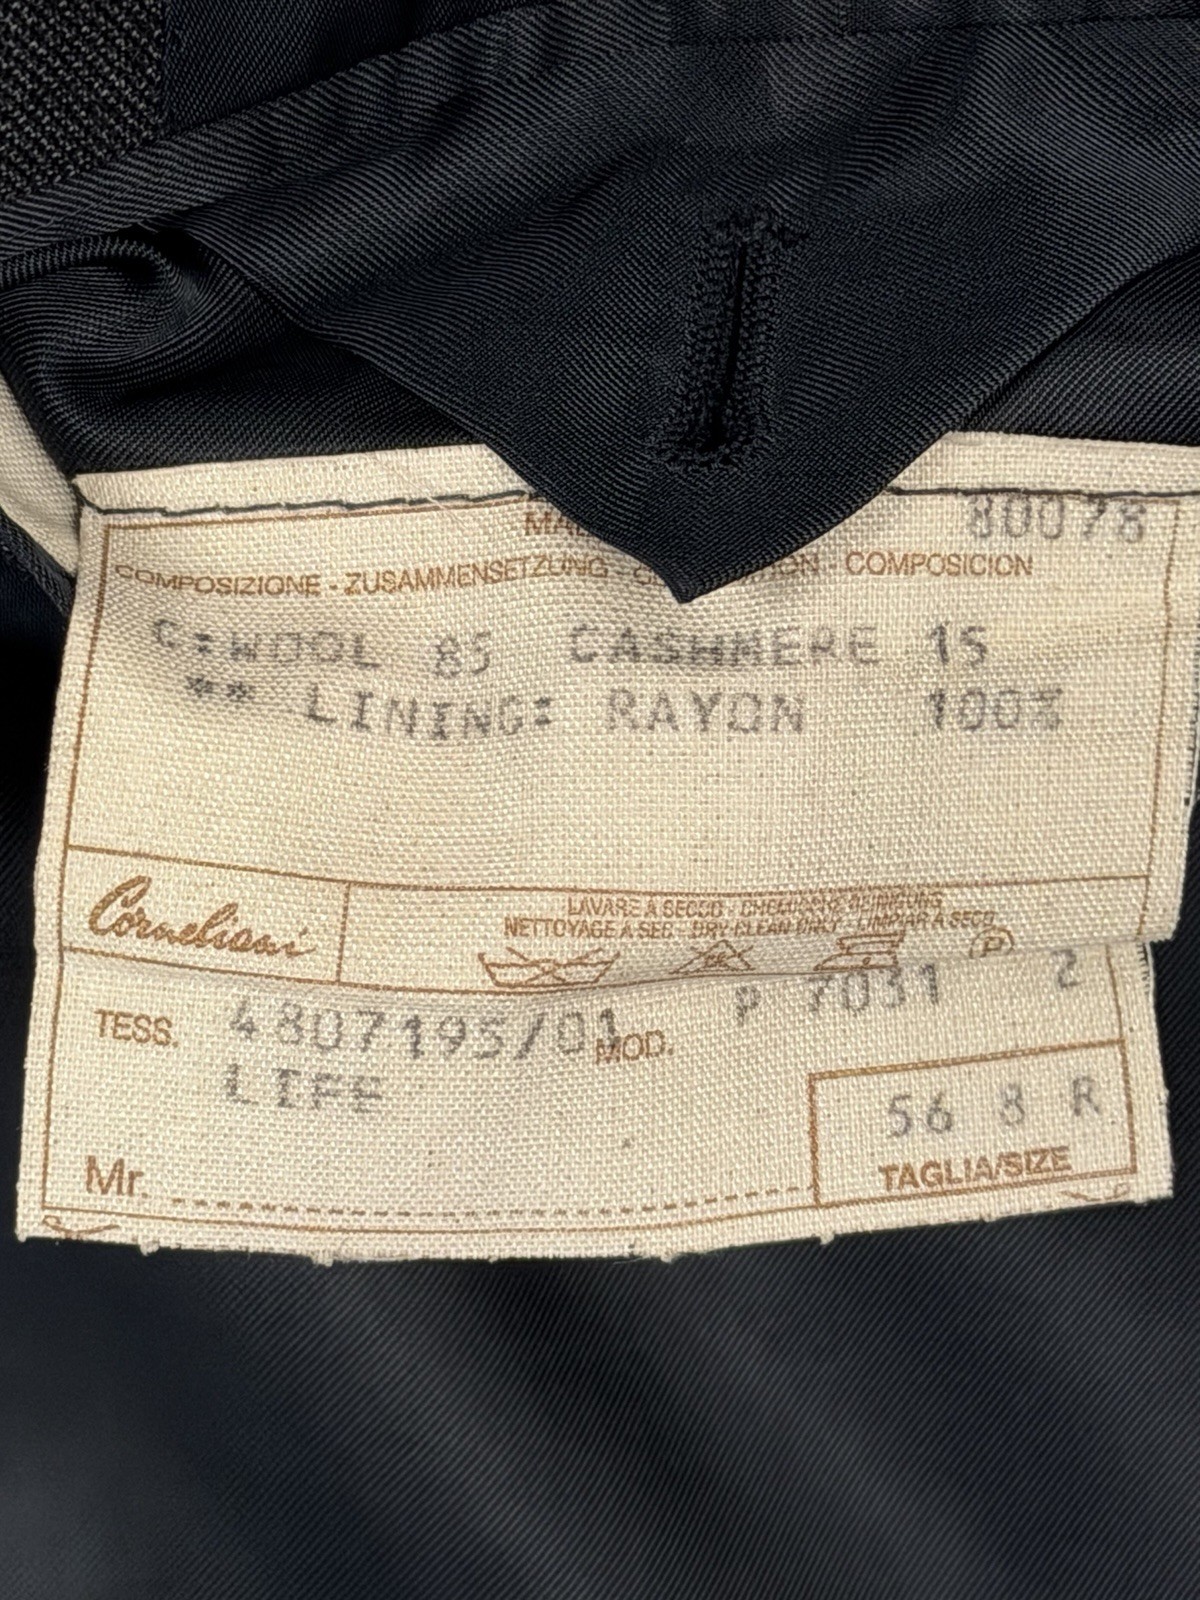 80078
COMPOSIZIONE - ZUSAMMENSETZUNG - COMPOSICION
C:WOOL 85 CASHMERE 15
** LINING: RAYON 100%
Corneliani
LAVARE A SECCO - CHEMISCHE REINIGUNG
NETTOYAGE A SEC - DRY CLEAN ONLY - LIMPIAR A SECO
P
TESS. 4807195/01 MOD. P 7031 2
LIFE
56 8 R
TAGLIA/SIZE
Mr.